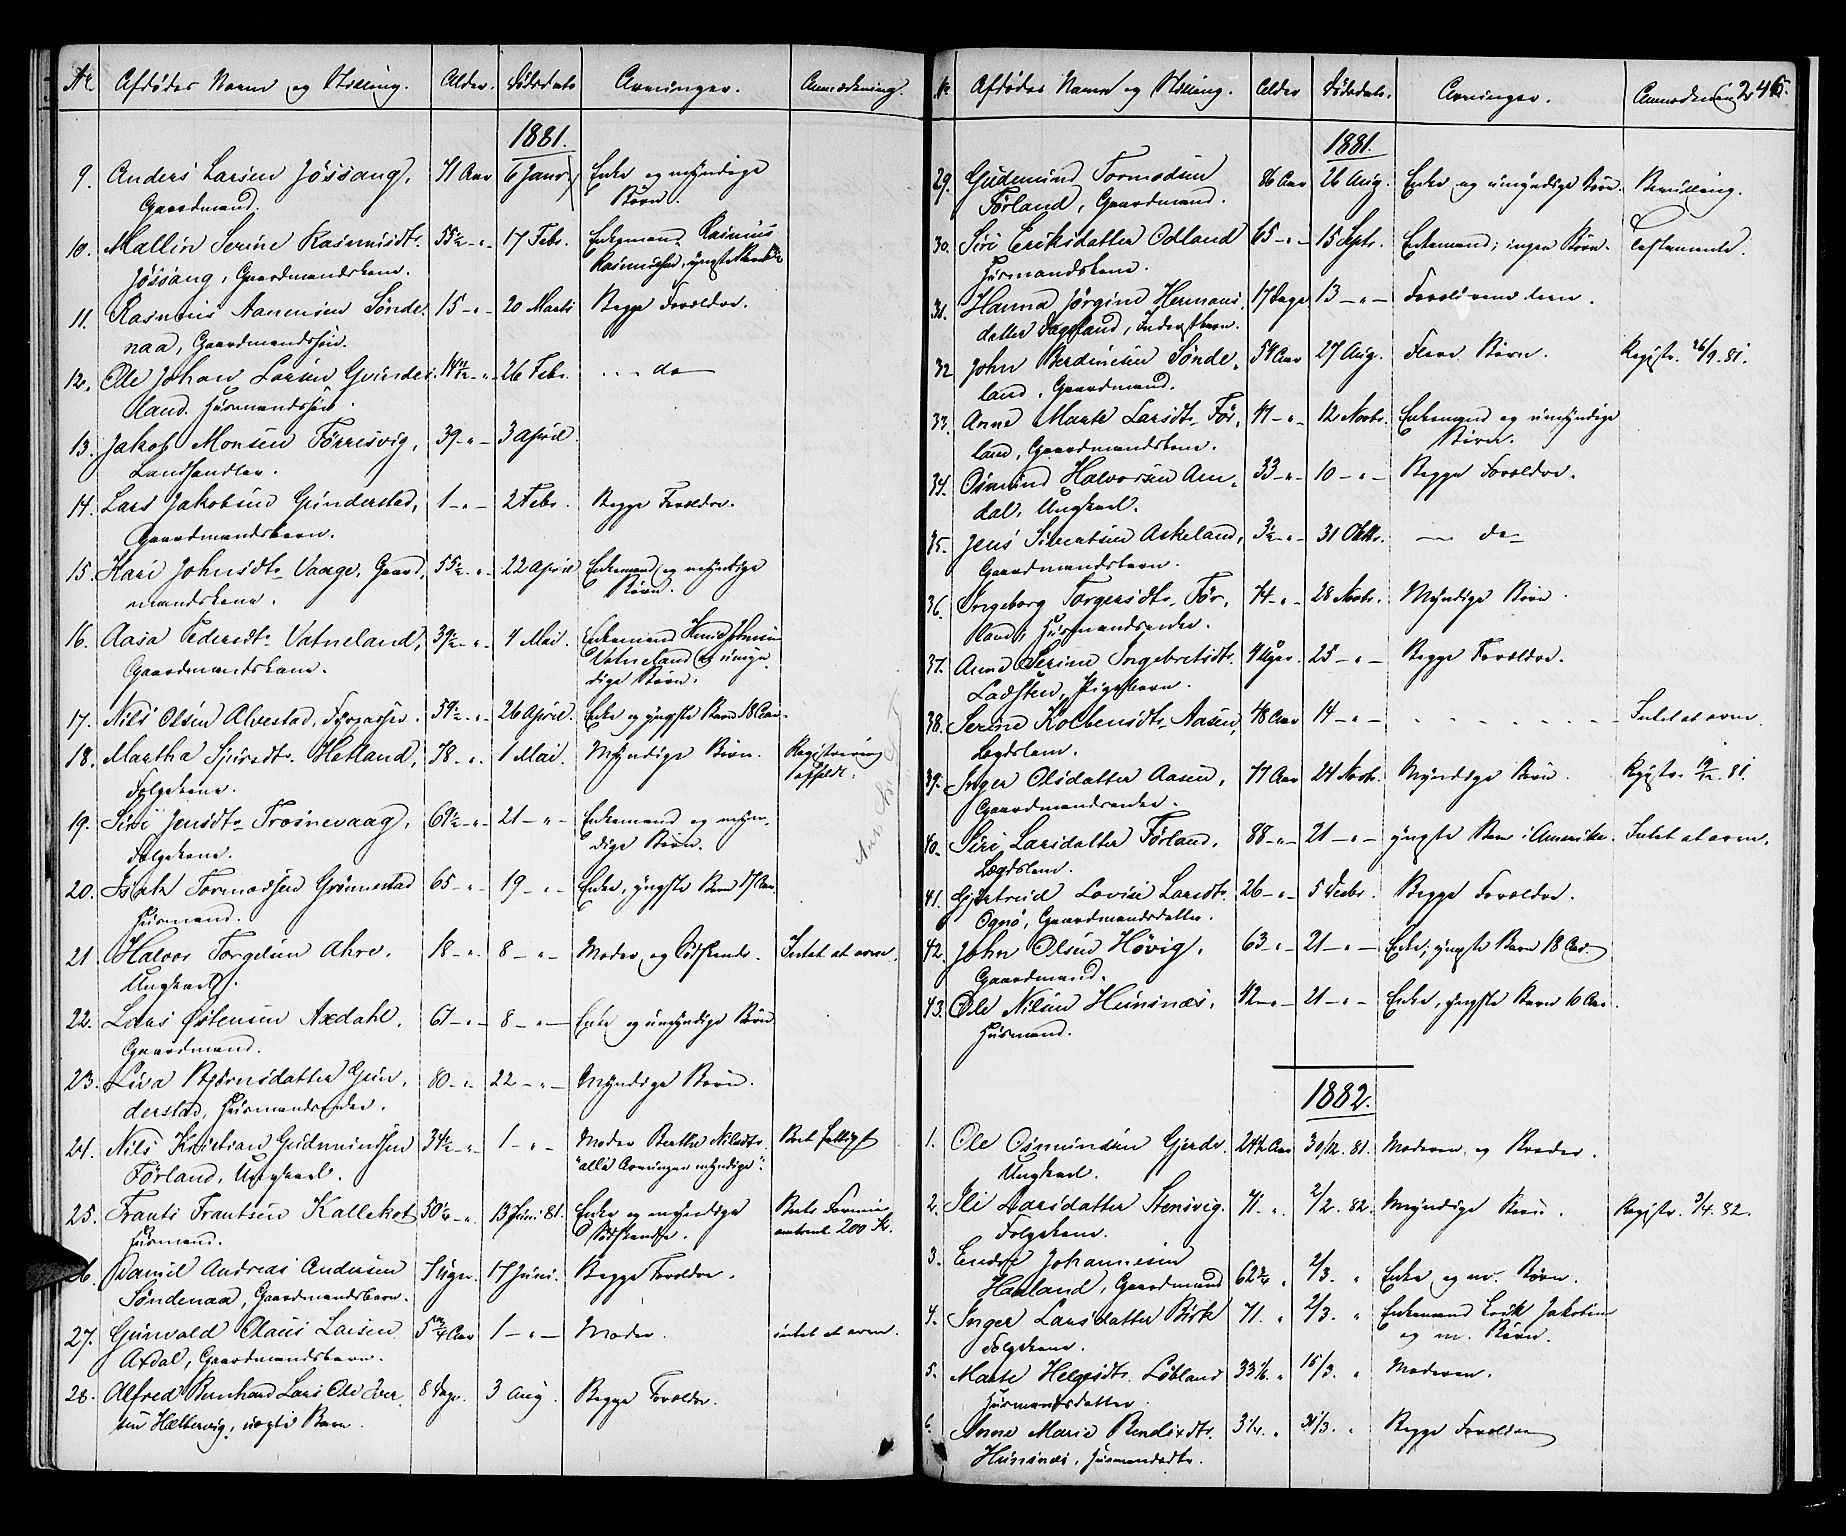 Nr. Afdødes Navn og Stilling. Alder. Dødsdato Arvinger. Anmærkning.
1881.
9. Anders Larsen Jøssang, 71 Aar 6 Janr. Enke og myndige
Gaardmand. Børn.
10. Mallin Serine Rasmusdtr. 55½ - " - 17 Febr. Enkemand Rasmus
Jøssang, Gaardmandskone. Rasmussen, yngste Barn
11. Rasmus Aanensen Sønde- 15 - " - 20 Marts Begge Forældre.
naa, Gaardmandssøn.
12. Ole Johan Larsen Gvinder- 14 - " - 26 Febr. - - - do -
land. Husmandssøn.
13. Jakob Monsen Tørrisvig, 39 - " - 3 April.
Landhandler.
14. Lars Jakobsen Gunderstad, 1 - " - 2 Febr. Begge Forældre.
Gaardmandsbarn.
15. Kari Johnsdtr. Vaage, Gaard- 55½ - " - 22 April Enkemand og myndige
mandskone. Børn.
16. Aasa Pedersdtr. Vatneland, 39½ - " - 4 Mai. Enkemand Knud Johnsen
Gaardmandskone. Vatneland og umyn-
dige Børn.
17. Nils Olsen Alvestad, 59½ - " - 26 April. Enke og yngste Barn 18 Aar.
18. Martha Sjursdtr. Hetland, 78 - " - 1 Mai. Myndige Børn. Registrering
Folgekone. afholdt.
19. Siri Jensdtr. Trosnevaag, 69½ - " - 21 - " - Enkemand og myn-
Folgekone. dige Børn.
20. Isak Tormodsen Grønnestad 65 - " - 19 - " - Enke, yngste Barn 17 Aar.
Husmand.
21. Halvor Torgelsen Ahre. 18 - " - 8 - " - Moder og Sødskende. Intet at arve.
Ungkarl.
22. Lars Østensen Axdahl. 67 - " - 8 - " - Enke og umyndige Børn
Gaardmand.
23. Liva Bjørnsdatter Gun- 80 - " - 22 - " - Myndige Børn.
derstad, Husmandsenke.
24. Nils Kristian Gudmundsen 34½ - " - 1 - " - Moder Berthe Nilsdtr. Boet fattigt
Førland, Ungkarl. "alle Arvinger myndige".
25. Frants Frantsen Kallekot 50¼ - " - 13 Juni 81. Enke og myndige Boets Formue
Husmand. Sødskende. omtrent 200 Kr.
26. Daniel Andreas Andersen 7 Uger. 17 Juni. Begge Forældre.
Søndenaa, Gaardmandsbarn.
27. Gunvald Olaus Larsen 5 Aar 1 - " - Moder. intet at arve.
Axdal, Gaardmandsbarn.
28. Alfred Bernhard Lars Ole Iver- 8 Dage. 3 Aug. Begge Forældre.
sen Hettervig, uægte Barn.
Nr. Afdødes Navn og Stilling. Alder Dødsdato. Arvinger. Anmærkning 246.
1881.
29. Gudmund Tormodsen 86 Aar 26 Aug. Enke og umyndige Børn. Bevilling.
Førland, Gaardmand.
30. Siri Eriksdatter Odland 65 - " - 15 Septr. Enkemand; ingen Børn. Testamente.
Husmandskone.
31. Hanna Jørgine Hermans- 17 Dage 13 - " - Forældrene.
datter Dagsland, Inderstbarn.
32. John Berdinesen Sønde- 54 Aar 27 Aug. Flere Børn. Registr. 26/9. 81.
land, Gaardmand.
33. Anne Marte Larsdtr. Før- 41 - " - 12 Novbr. Enkemand og umyndige
land, Gaardmandskone. Børn.
34. Osmund Halvorsen Am- 33 - " - 10 - " - Begge Forældre.
dal, Ungkarl.
35. Jens Sivertsen Askeland, 3½ - " - 31 Oktbr. - do -
Gaardmandsbarn.
36. Ingeborg Torgersdtr. Før- 74 - " - 28 Novbr. Myndige Børn.
land, Husmandsenke.
37. Anne Serine Ingebretsdtr. 4 Uger. 25 - " - Begge Forældre.
Ladsten, Pigebarn.
38. Serine Kolbensdtr. Aasen, 48 Aar 14 - " - - - - - - - Intet at arve.
Lægdslem.
39. Inger Olsdatter Aasen, 77 Aar 24 Novbr. Myndige Børn. Registr. 19/12. 81.
Gaardmandsenke.
40. Siri Larsdatter Førland. 88 - " - 21 - " - yngste Barn i Amerika. Intet at arve.
Lægdslem.
41. Gjertrud Lovise Larsdtr. 26 - " - 5 Decbr. Begge Forældre.
Ognø, Gaardmandsdatter.
42. John Olsen Høvig, 63 - " - 21 - " - Enke; yngste Barn 18 Aar.
Gaardmand.
43. Ole Nilsen Hunsnæs, 42 - " - 21 - " - Enke, yngste Barn 10 Aar.
Husmand.
1882.
1. Ole Osmundsen Gjerde. 24½ Aar 30/12. 81. Moderen og Brødre.
Ungkarl.
2. Ili Larsdatter Stensvig. 71. " 2/2. 82. Myndige Børn. Registr. 3/4. 82.
Folgekone.
3. Endre Johannesen
Hasland, Gaardmand 62¾ " 2/3. " Enke og m. Børn.
4. Inger Larsdatter Birk 71. " 2/3. " Enkemand Erik Jakobsen
Folgekone. og m. Børn.
5. Marte Helgesdtr. Løbland 33½. " 15/3. " Moderen.
Husmandsdatter.
6. Anne Marie Bendixdtr. 3¼. " 31/3. " Begge Forældre
Hunsnæs, Husmandsdtr.